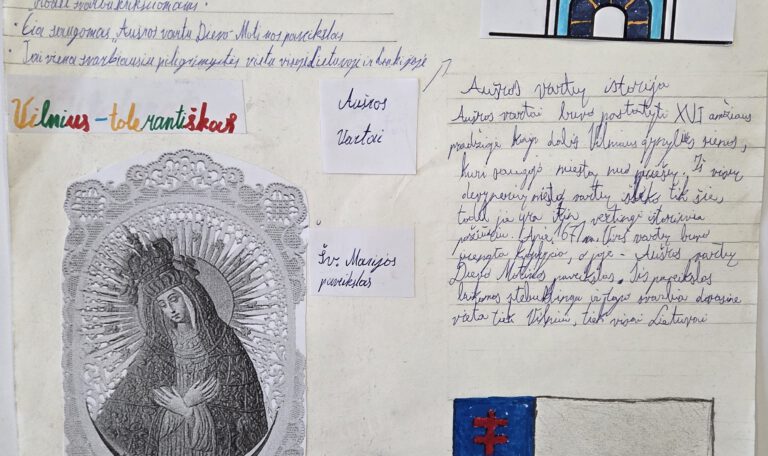 · Čia saugomas Aušros vartų Dievo Motinos paveikslas
· Tai viena svarbiausių piligrimystės vietų visoje Lietuvoje ir kraikijoje
Vilnius - tolerantiškas
Aušros
Vartai
Šv. Marijos
paveikslas
Aušros vartų istorija
Aušros vartai buvo pastatyti XVI amžiaus
pradžioje kaip dalis Vilniaus gynybinės sienos,
kuri saugojo miestą nuo priešų. Iš visų
devynerių miesto vartų išliko tik šie,
todėl jie yra itin vertingi istoriniu
požiūriu. 1671 m. virš vartų buvo
įrengta koplyčia, o joje - Aušros vartų
Dievo Motinos paveikslas. Šis paveikslas
laikomas stebuklingu ir tapo svarbia dvasine
vieta tiek Vilniui, tiek visai Lietuvai